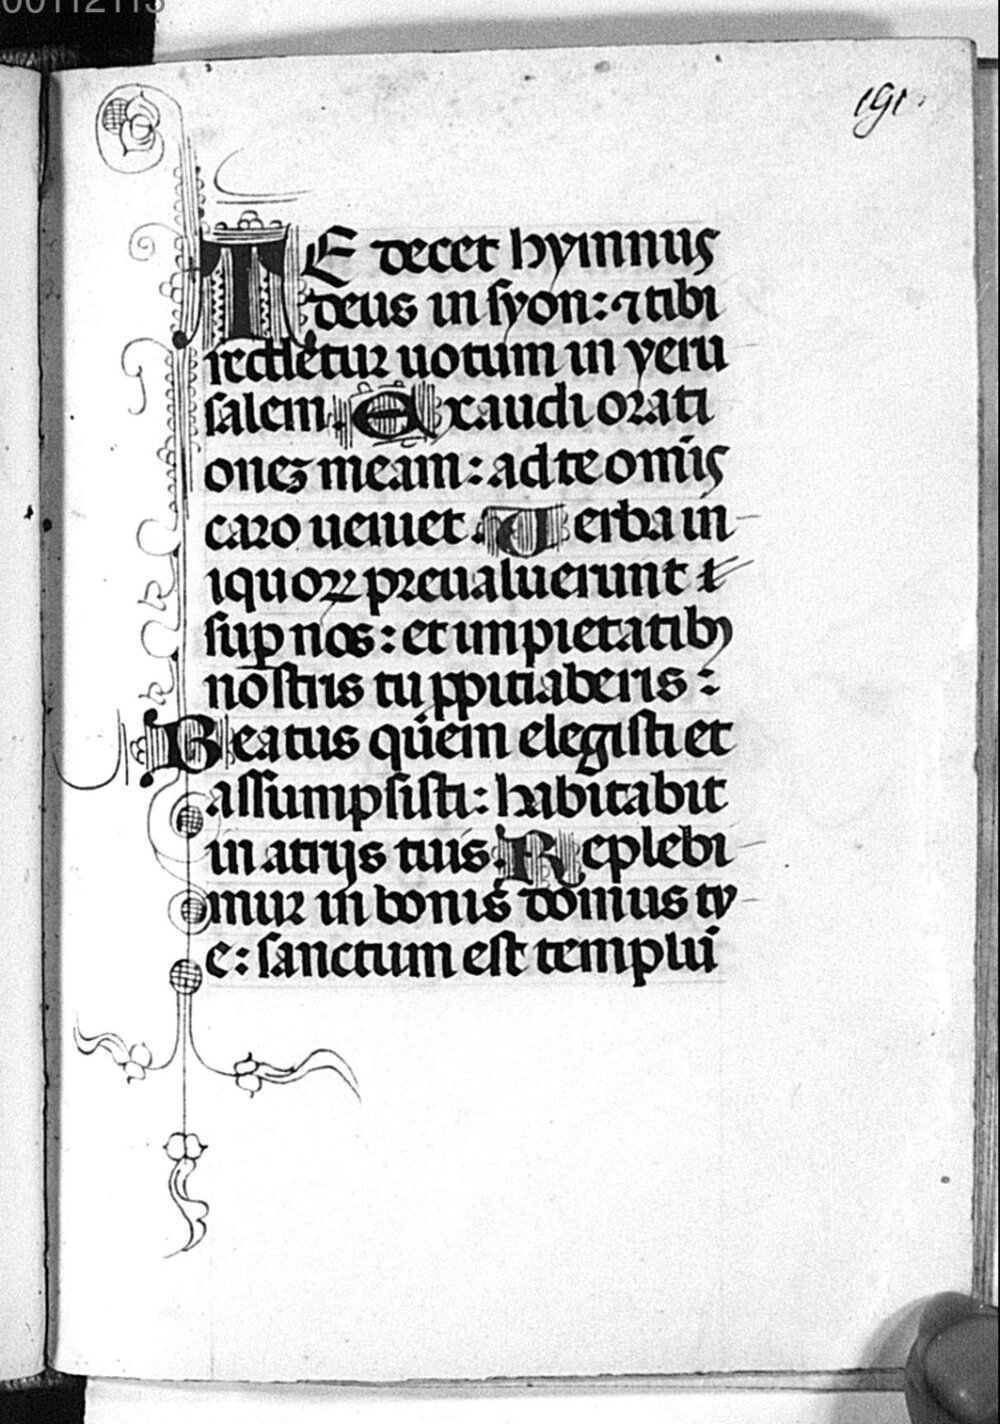 00112113
191
TE decet hymnus
deus in syon: ⁊ tibi
reddetur uotum in yeru
salem. Exaudi orati
onez meam: ad te omīs
caro ueniet. Uerba in
iquoꝝ preualuerunt
suꝑ nos: et impietatibꝫ
nostris tu ꝓpitiaberis:
Beatus quem elegisti et
assumpsisti: habitabit
in atrijs tuis. Replebi
mur in bonis domus tv
e: sanctum est templū